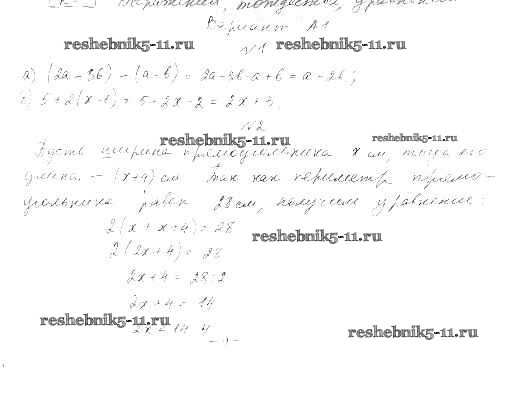 Выражения, тождества, уравнения
Вариант А1
reshebnik5-11.ru reshebnik5-11.ru
№1
а) (2а - 3б) - (а - б) = 2а - 3б - а + б = а - 2б;
б) 5 + 2(х - 1) = 5 + 2х - 2 = 2х + 3.
№2
reshebnik5-11.ru reshebnik5-11.ru
Пусть ширина прямоугольника х см, тогда его
длина - (х+4) см. Так как периметр прямо-
угольника равен 28 см, получим уравнение:
2(х + х+4) = 28
reshebnik5-11.ru
2(2х+4) = 28
2х+4 = 28:2
2х+4 = 14
reshebnik5-11.ru
2х = 14-4
reshebnik5-11.ru